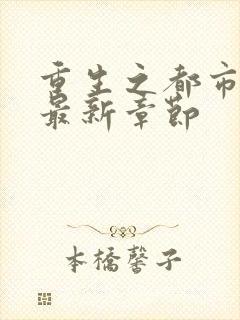 重生之都市
最新章節
本橋馨子